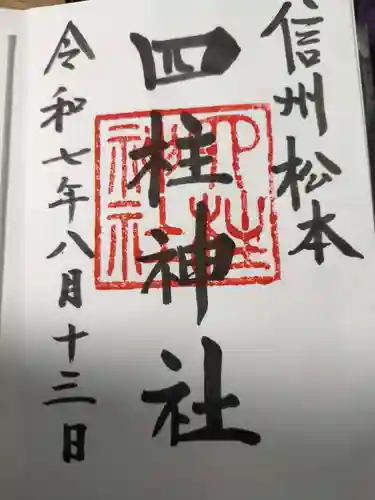 信州松本
四柱神社
令和七年八月十三日
四柱神社